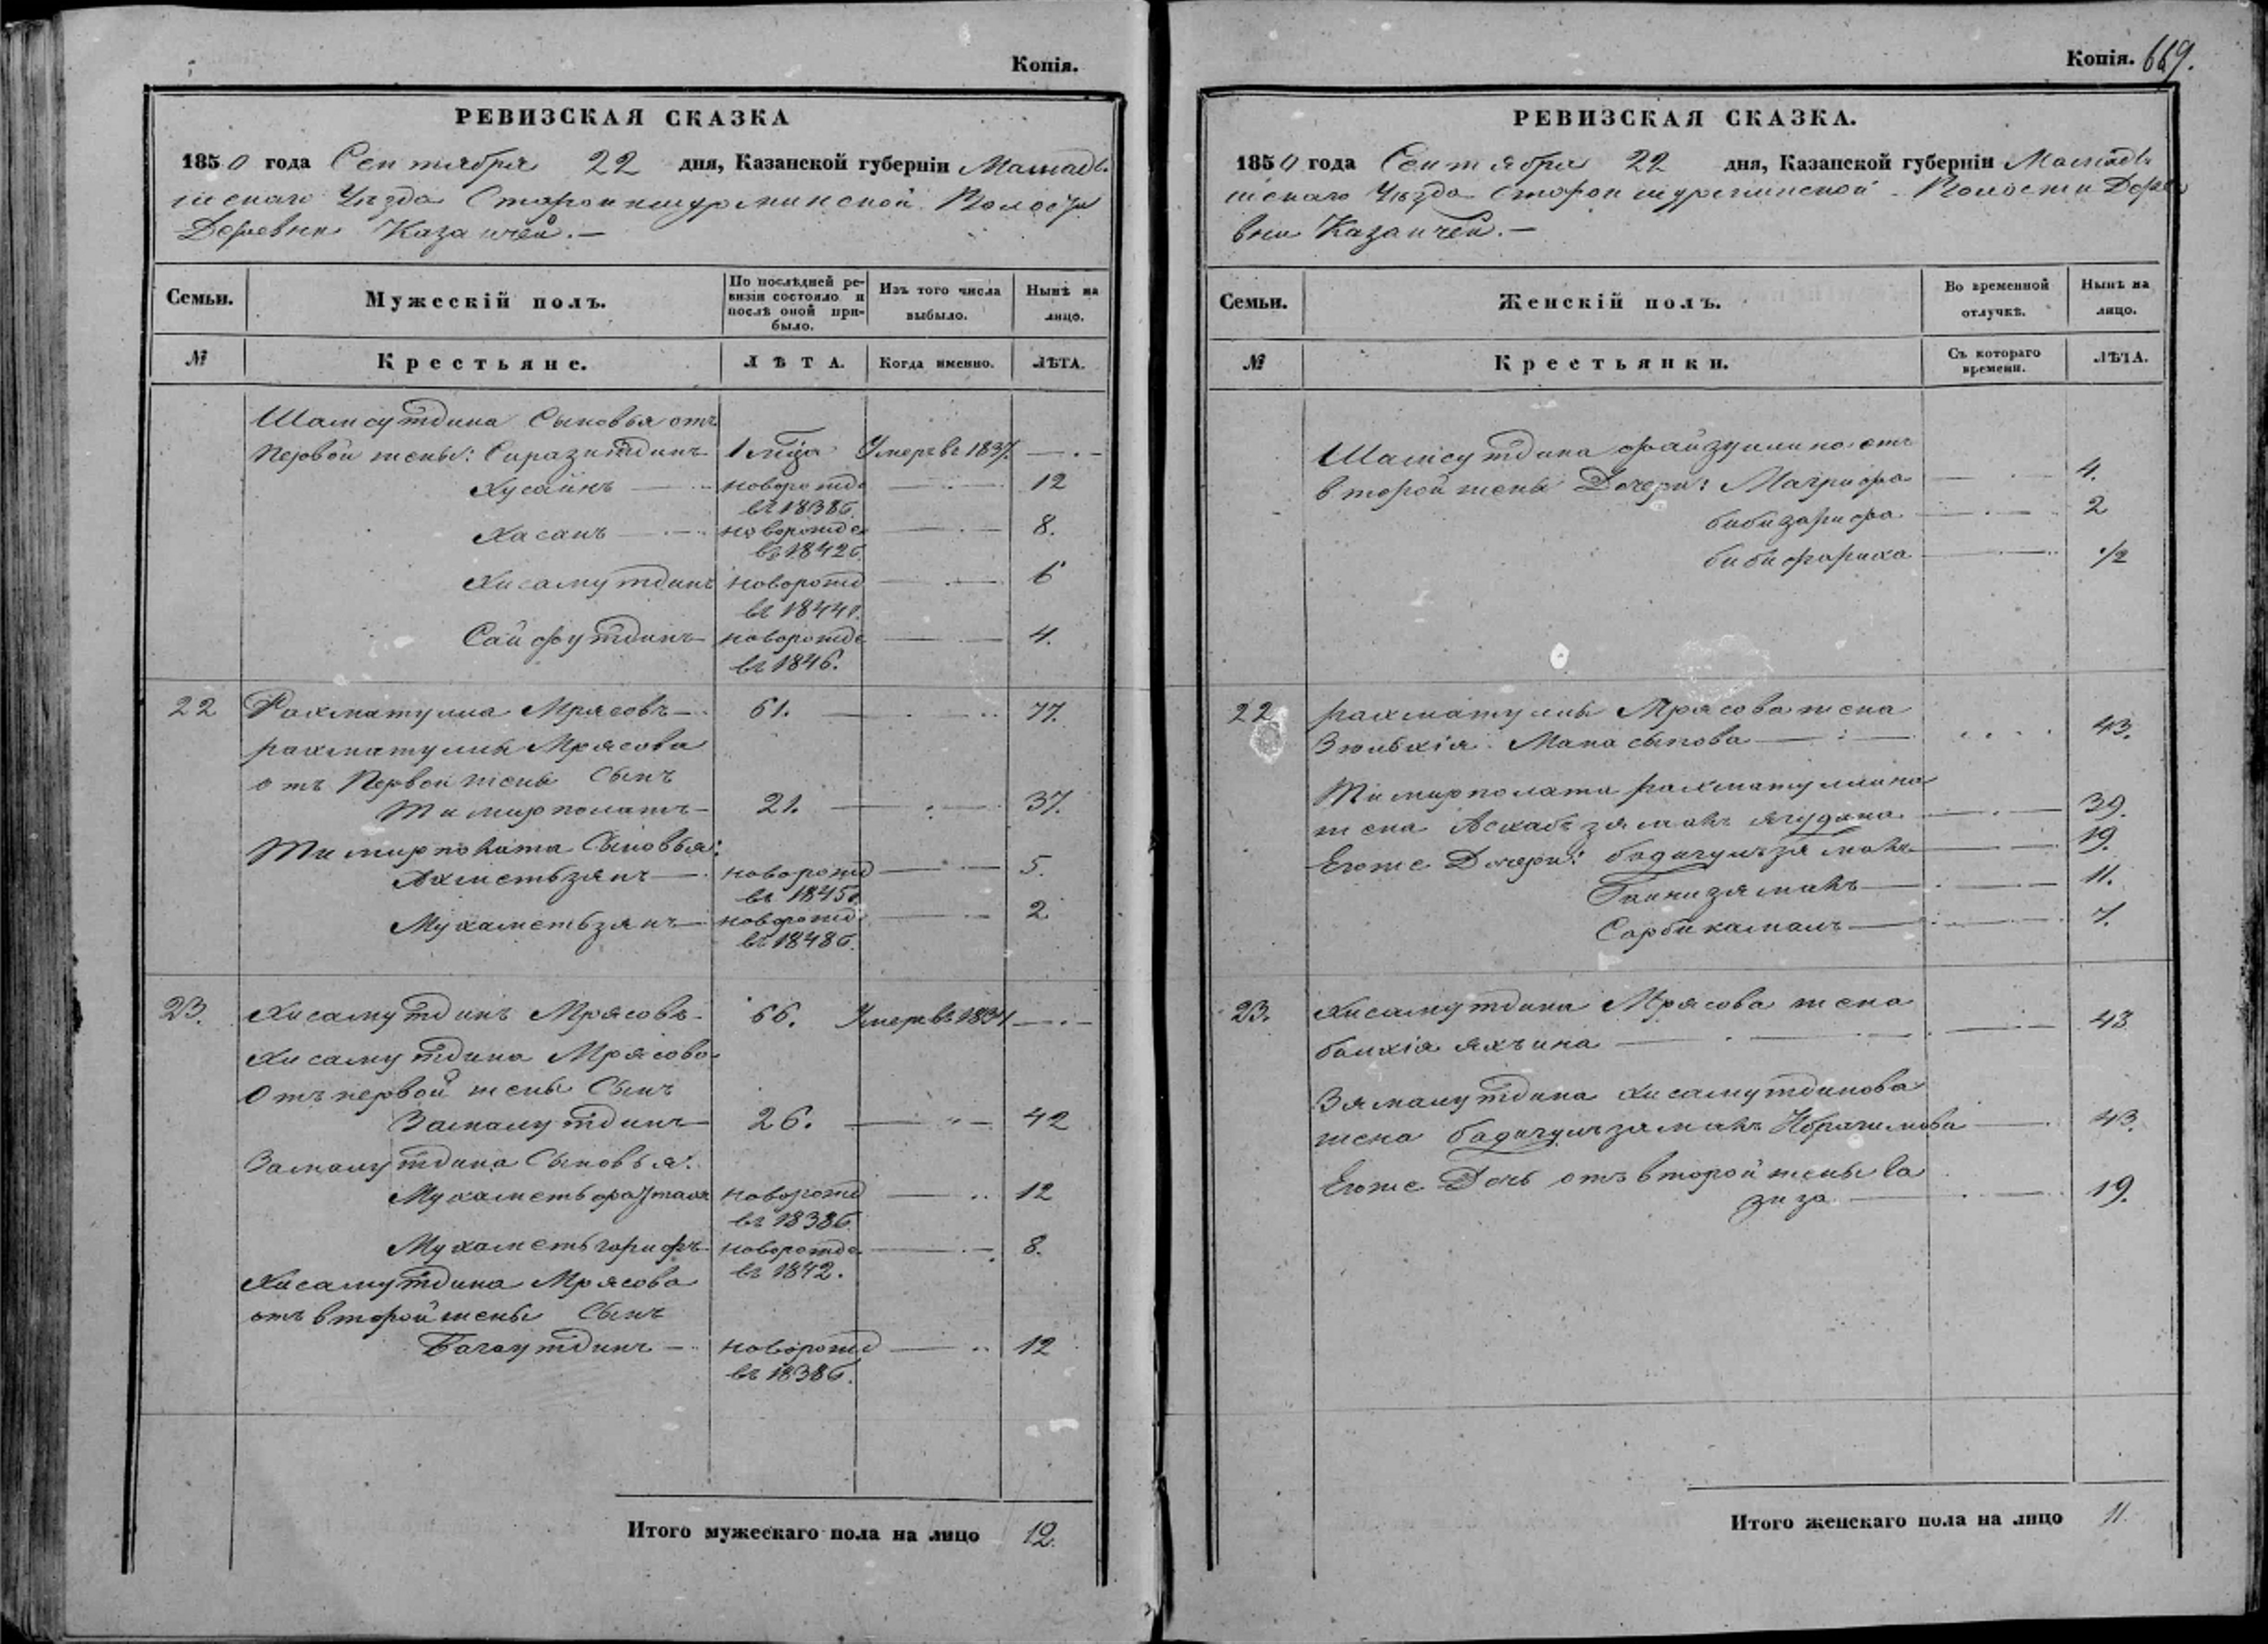 Копія.
РЕВИЗСКАЯ СКАЗКА
1850 года Сентября 22 дня, Казанской губерніи Мамадъ
шскаго Уѣзда Старокшурминской Волости
Деревни Казанчей. —
Семьи.
Мужескій полъ.
По послѣдней ре-
визіи состояло и
послѣ оной при-
было.
Изъ того числа
выбыло.
Нынѣ на
лицо.
№
Крестьяне.
ЛѢТА.
Когда именно.
ЛѢТА.
Шамсутдина Сыновья отъ
Первой жены: Сиразитдинъ 1 года Умеръ въ 1837. — . —
Хусаинъ новорожде 12
въ 1838г.
Хасанъ новорожде 8.
въ 1842г.
Хисамутдинъ новорожд 6
въ 1844г.
Сайфутдинъ новорожде 4.
въ 1846.
22 Рахматулла Мрясовъ 61. 77.
рахматуллы Мрясова
отъ Первой жены Сынъ
Тимирполатъ 21. 37.
Тимирполата Сыновья:
Ахметьзянъ новорожд 5.
въ 1845г.
Мухаметьзянъ новорожд 2
въ 1848г.
23. Хисамутдинъ Мрясовъ 66. Умеръ въ 1834 — . —
Хисамутдина Мрясова
Отъ первой жены Сынъ
Замалутдинъ 26. 42
Замалутдина Сыновья:
Мухаметь новорожд 12
въ 1838г.
Мухаметьгарифъ новорожде 8.
въ 1842.
Хисамутдина Мрясова
отъ второй жены Сынъ
Багаутдинъ новорожд 12
въ 1838г.
Итого мужескаго пола на лицо 12.
Копія. 669.
РЕВИЗСКАЯ СКАЗКА.
1850 года Сентября 22 дня, Казанской губерніи Мамадъ
шскаго Уѣзда Старокшурминской Волости Дере
вни Казанчей. —
Семьи.
Женскій полъ.
Во временной
отлучкѣ.
Нынѣ на
лицо.
№
Крестьянки.
Съ котораго
времени.
ЛѢТА.
Шамсутдина файзуллина отъ
второй жены Дочери: Магрифа 4.
бибизарифа 2
бибифариха 1/2
22. рахматуллы Мрясова жена
Зюльхія Манасыпова 43.
Тимирполата рахматуллина
жена Асхабьзямалъ ягудина 39.
Егоже Дочери: бадигульзямалъ 19.
Гайнизямалъ 11.
Сарбикамалъ 7.
23. Хисамутдина Мрясова жена
балхія яхъина 43
Зямалутдина хисамутдинова
жена бадигульзямалъ Ибрагимова 43.
Егоже Дочь отъ второй жены Га
зиза 19.
Итого женскаго пола на лицо 11.